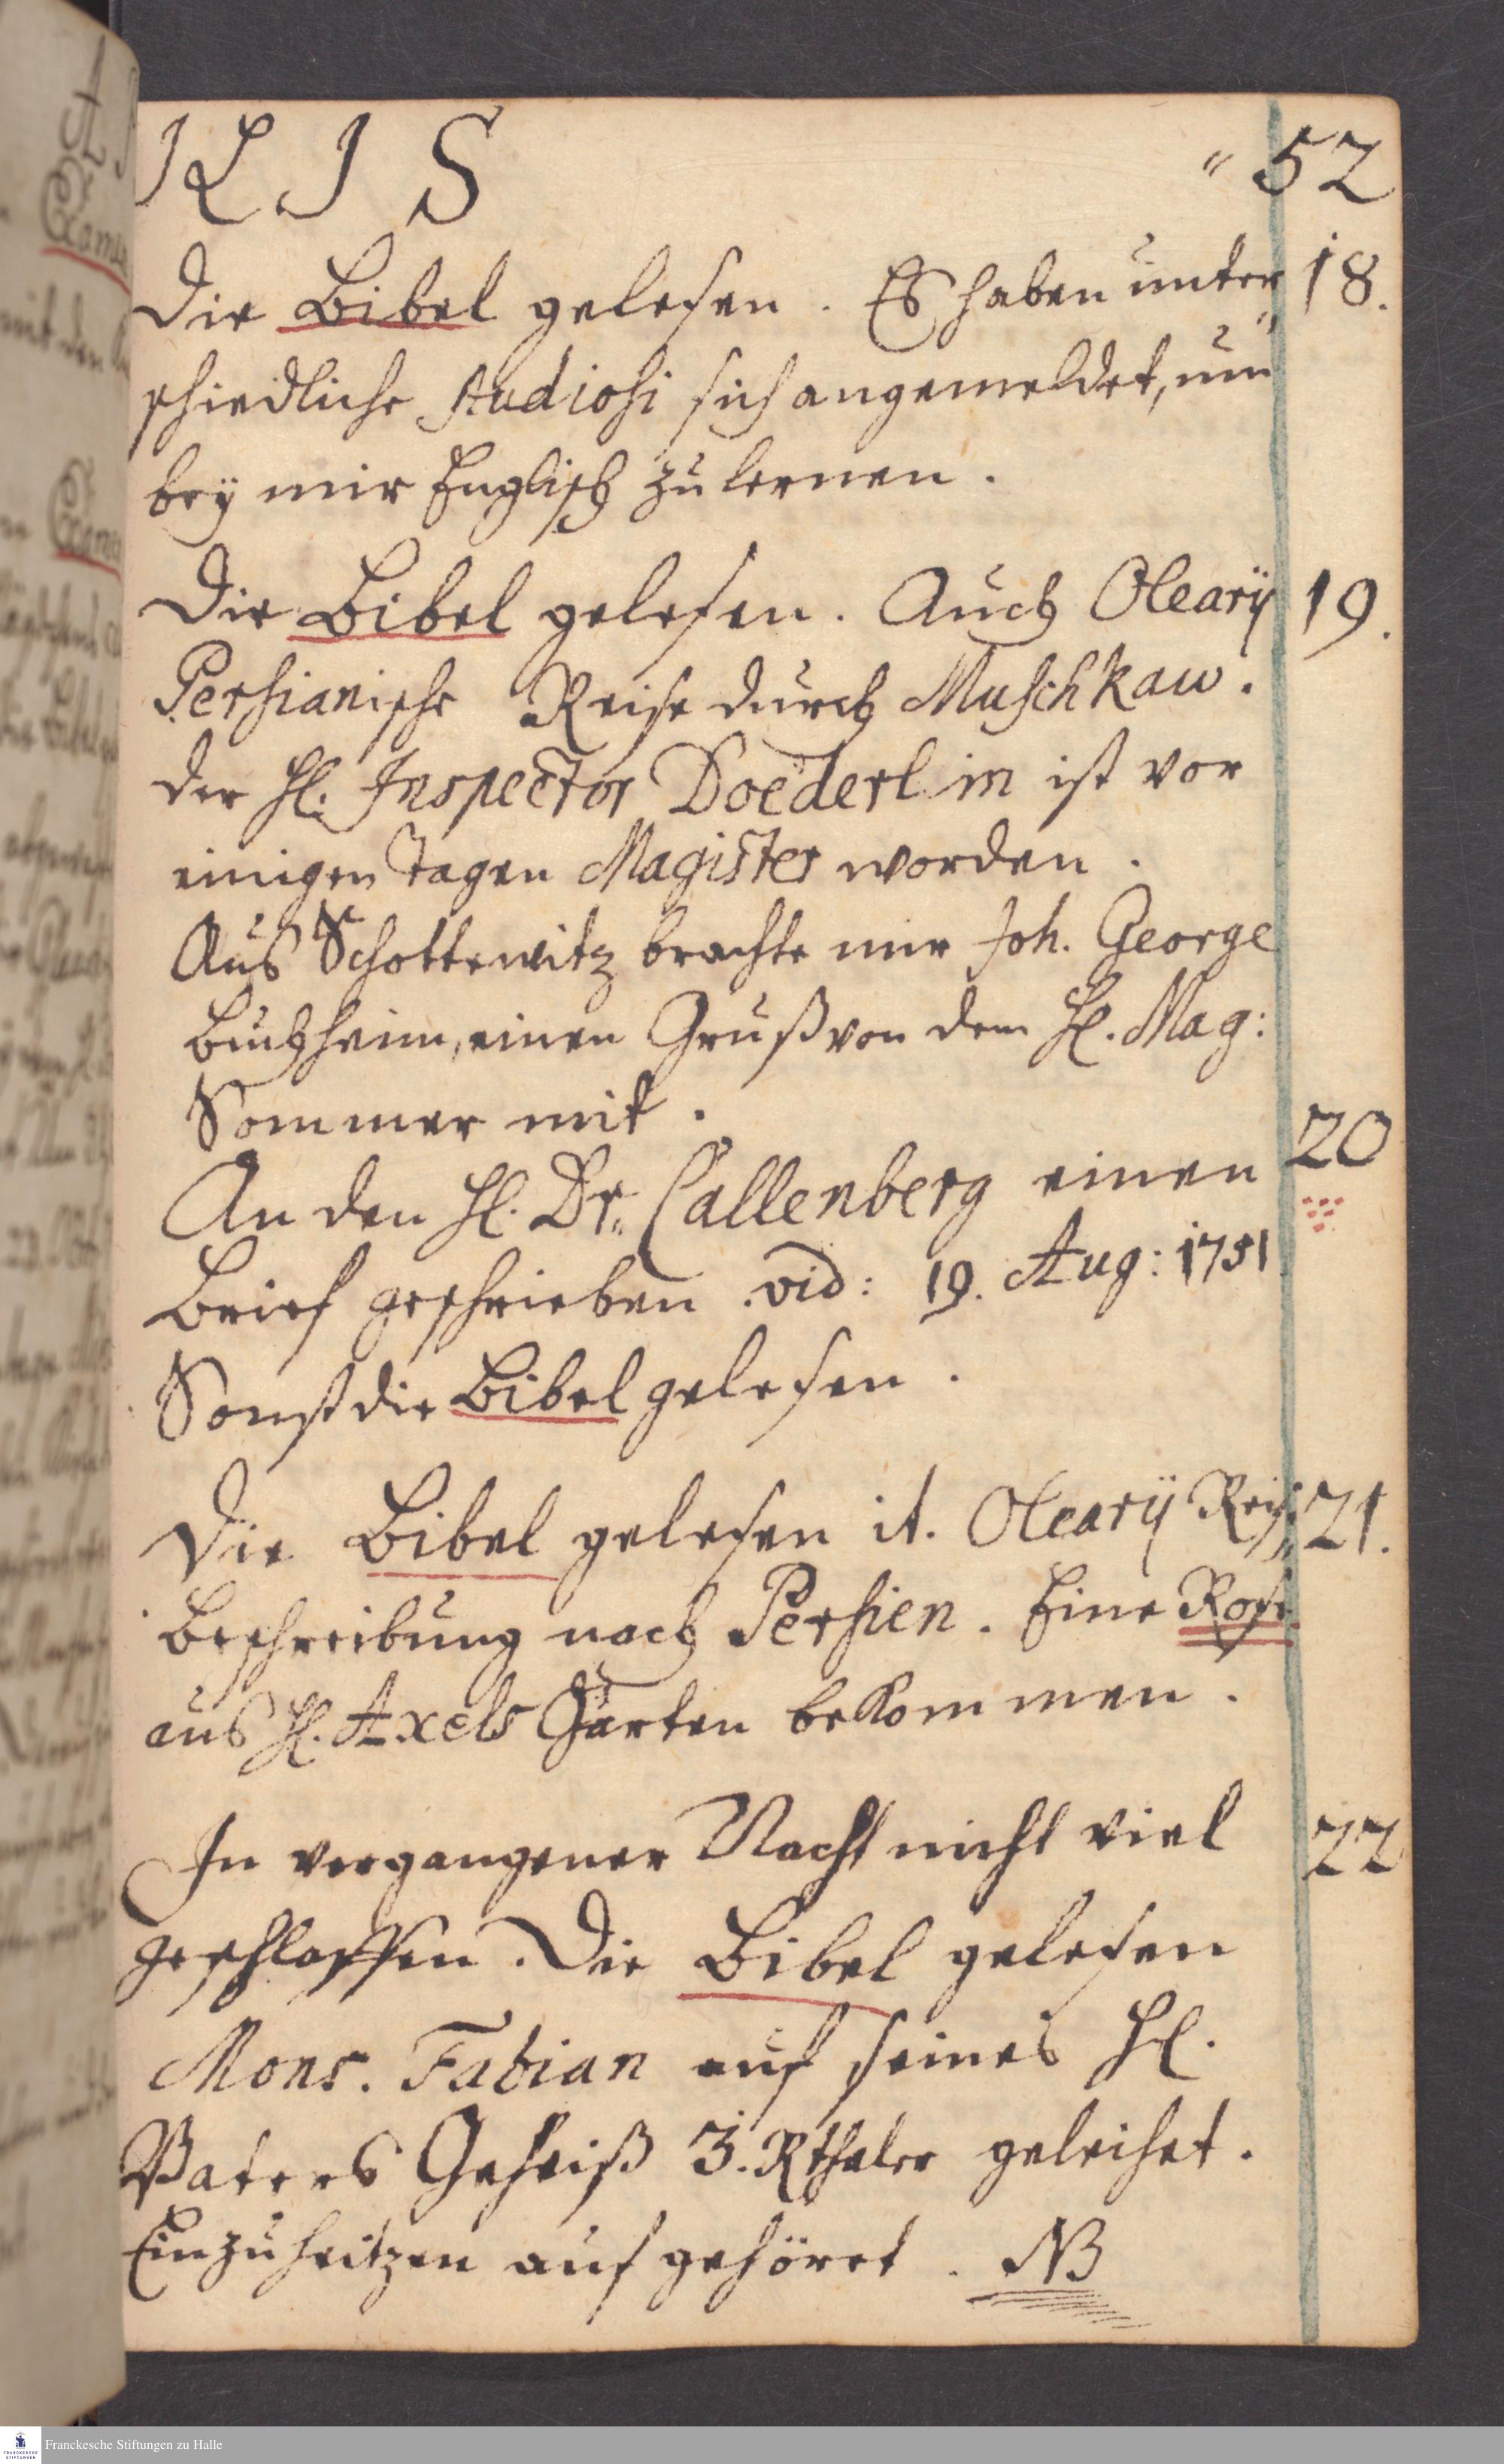 R I S " 52
Die Bibel gelesen. Es haben unter„ 18.
schiedliche studiosi sich angemeldet, um
bey mir Englisch zu lernen.
Die Bibel gelesen. Auch Olearÿ 19.
Persianische Reise durch Muschkaw.
der H. Inspector Doederlin ist vor
einigen Tagen Magister worden.
Aus Schottewitz brachte mir Joh. George
Buchheim, einen Gruß von dem H. Mag:
Sommer mit.
20
An den H. Dr. Callenberg einen
Brief geschrieben. vid: 19. Aug: 1751
Sonst die Bibel gelesen.
Die Bibel gelesen it. Olearÿ Reise„ 21.
Beschreibung nach Persien. Eine Rose
aus H. Axels Garten bekommen.
In vergangener Nacht nicht viel 22
geschlaffen. Die Bibel gelesen
Mons. Fabian auf seines H.
Vaters Geheiß 3. Rthaler geleihet.
Einzuheitzen aufgehöret. NB
Franckesche Stiftungen zu Halle